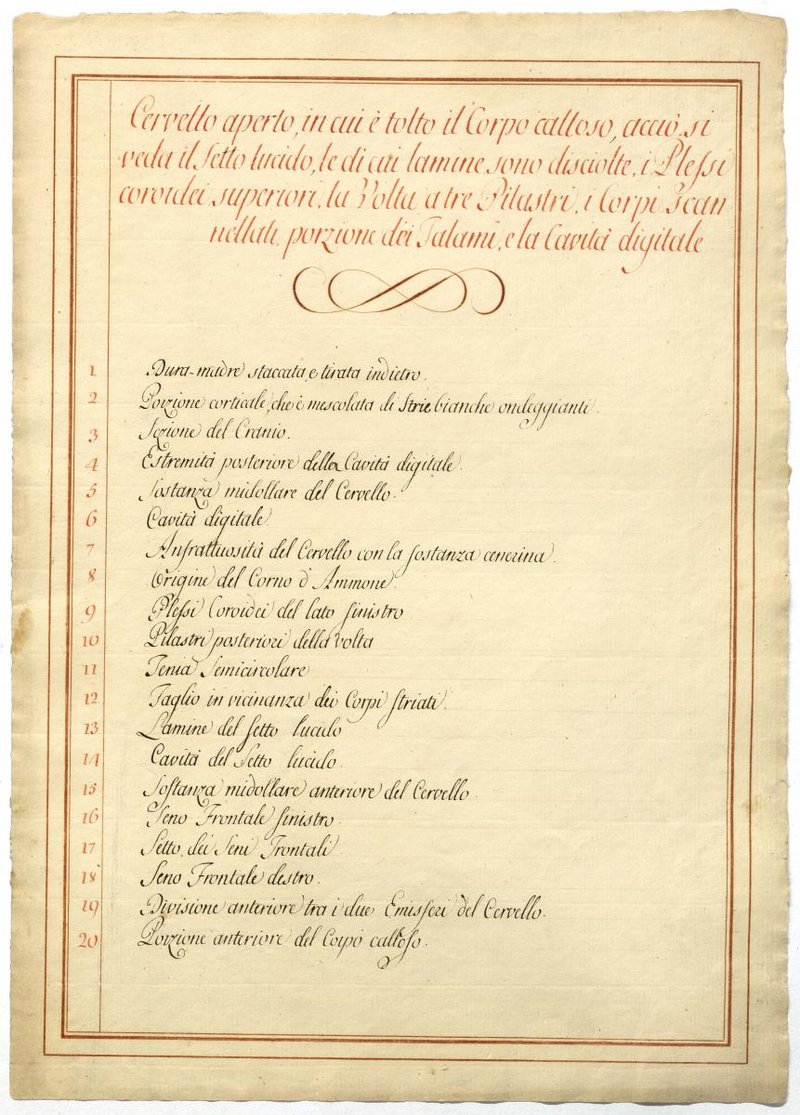 Cervello aperto, in cui è tolto il Corpo calloso, acciò si
veda il Setto lucido, le di cui lamine sono disciolte, i Plessi
coroidei superiori, la Volta a tre Pilastri, i Corpi Scan
nellati, porzione dei Talami, e la Cavità digitale
1 Dura-madre staccata, e tirata indietro.
2 Porzione corticale, che è mescolata di Strie bianche ondeggianti.
3 Sezione del Cranio.
4 Estremità posteriore della Cavità digitale.
5 Sostanza midollare del Cervello.
6 Cavità digitale.
7 Anfrattuosità del Cervello con la sostanza cenerina.
8 Origine del Corno d'Ammone.
9 Plessi Coroidei del lato sinistro
10 Pilastri posteriori della volta
11 Tenia Semicircolare
12 Taglio in vicinanza dei Corpi striati.
13 Lamine del setto lucido
14 Cavità del Setto lucido.
15 Sostanza midollare anteriore del Cervello.
16 Seno Frontale sinistro.
17 Setto dei Seni Frontali.
18 Seno Frontale destro.
19 Divisione anteriore tra i due Emisferi del Cervello.
20 Porzione anteriore del Corpo calloso.